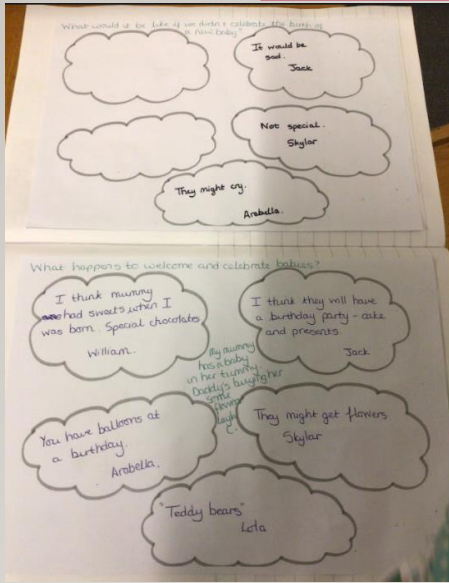 What would it be like if we didn't celebrate the birth of
a new baby?
It would be
sad.
Jack
Not special.
Skylar
They might cry.
Arabella.
What happens to welcome and celebrate babies?
I think mummy
had sweets when I
was born. Special chocolates
William.
I think they will have
a birthday party - cake
and presents.
Jack
My mummy
has a baby
in her tummy.
Daddy's buying her
some
You have balloons at
a birthday.
Arabella.
They might get flowers
Skylar
"Teddy bears"
Lola